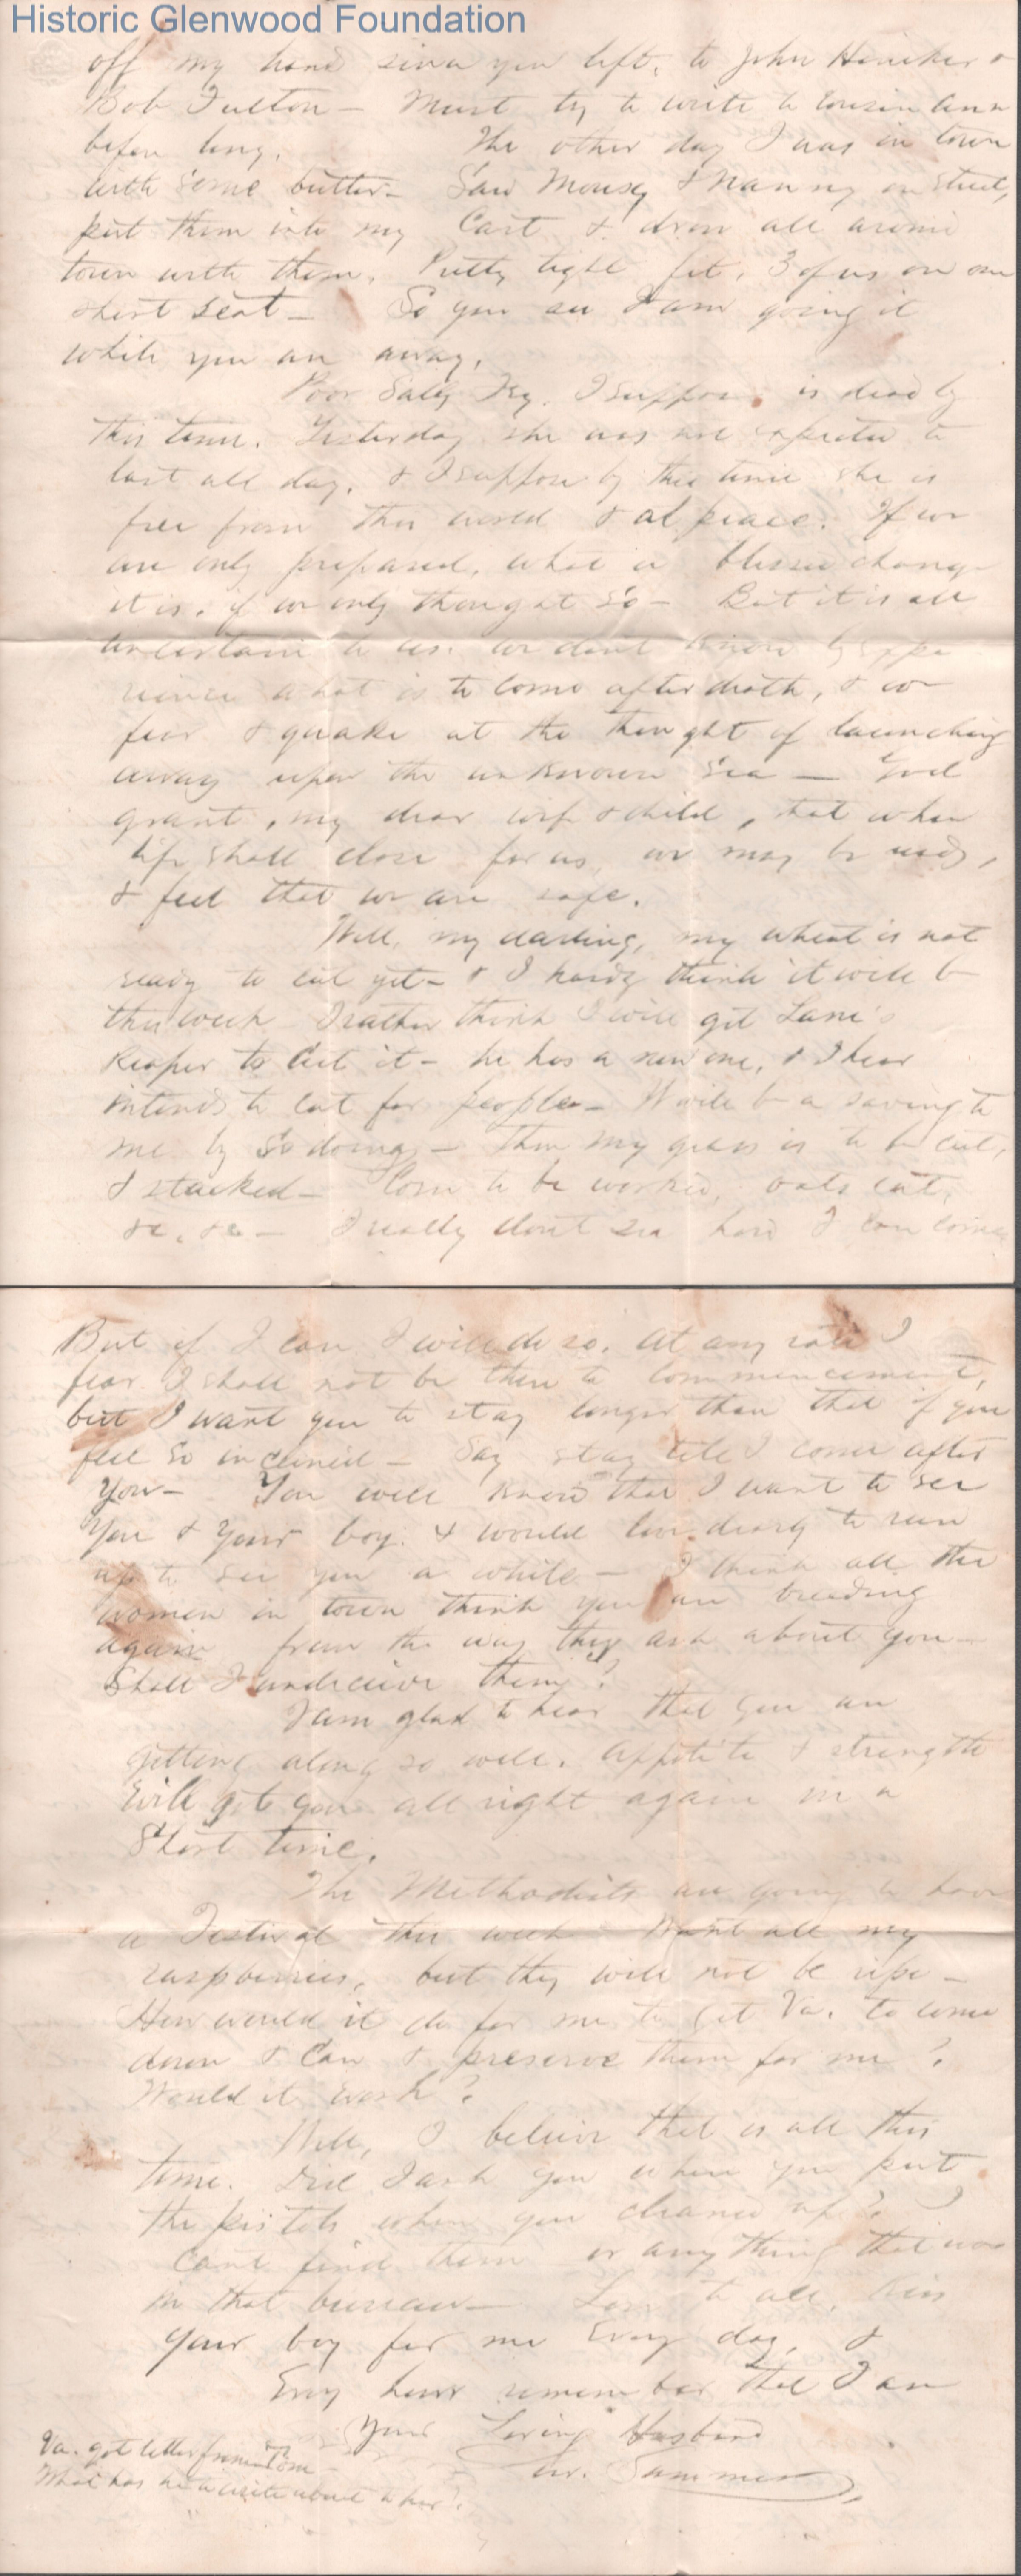 Historic Glenwood Foundation
off my hand since you left, to John &
Bob Fulton — Must try to write to Cousin Ann
before long. The other day I was in town
with some butter — Saw Mousy & Nanny on street,
put them into my Cart & drove all around
town with them. Pretty tight fit, 3 of us on one
short seat — So you see I am going it
while you are away.
Poor Sally I suppose is dead by
this time. Yesterday she was not expected to
last all day, & I suppose by this time she is
free from this world & at peace. If we
are only prepared, what a blessed change
it is, if we only thought so — But it is all
uncertain to us. We don't know by expe
rience what is to come after death, & we
fear & quake at the thought of launching
away upon the unknown Sea — God
grant, my dear wife & child, that when
life shall close for us, we may be ready,
& feel that we are safe.
Well, my darling, my wheat is not
ready to cut yet — & I hardly think it will be
this week I rather think I will get Lane's
Reaper to Cut it — he has a new one, & I hear
intends to cut for people — It will be a saving to
me by so doing — Then my grass is to be cut,
& stacked — Corn to be worked, oats cut,
&c, &c — I really don't see how I can come
But if I can I will do so. At any rate I
fear I shall not be there to Commencement,
but I want you to stay longer than that if you
feel so inclined — Say stay till I come after
You — You well know that I want to see
You & Your boy. & would love dearly to run
up to see you a while — I think all the
women in town think you are breeding
again from the way they ask about you —
Shall I undeceive them?
I am glad to hear that you are
getting along so well. Appetite & strength
will get you all right again in a
Short time.
The Methodists are going to have
a Festival this week Want all my
raspberries, but they will not be ripe —
How would it do for me to get Va. to come
down & Can & preserve them for me?
Would it work?
Well, I believe that is all this
time. Did I ask you where you put
the pistols when you cleaned up? I
Cant find them or any thing that was
in that bureau — Love to all, Kiss
your boy for me Every day, &
Every hour remember that I am
Your Loving Husband
Va. got letter from Tom —
What has he to write about to her?